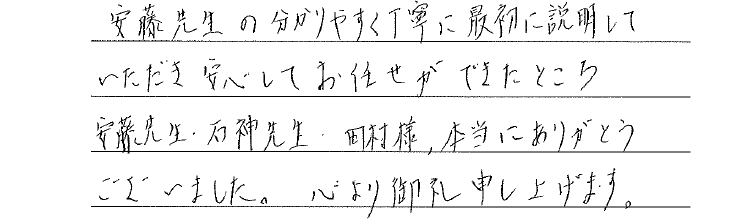 安藤先生の分かりやすく丁寧に最初に説明して
いただき安心してお任せができたところ
安藤先生・石神先生・田村様,本当にありがとう
ございました。心より御礼申し上げます。